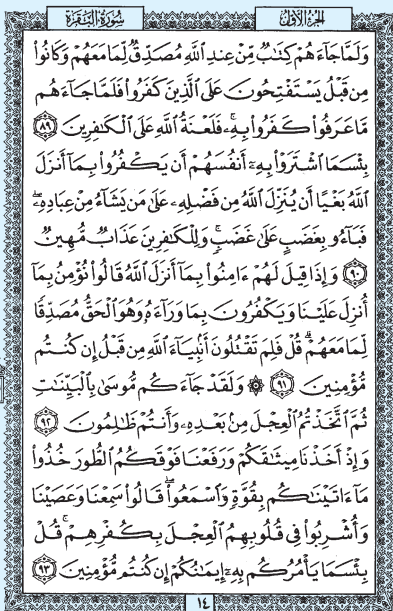 سُورَةُ البَقَرَةِ الجُزءُ الأوّلُ
وَلَمَّا جَآءَهُمْ كِتَٰبٌ مِّنْ عِندِ ٱللَّهِ مُصَدِّقٌ لِّمَا مَعَهُمْ وَكَانُوا۟
مِن قَبْلُ يَسْتَفْتِحُونَ عَلَى ٱلَّذِينَ كَفَرُوا۟ فَلَمَّا جَآءَهُم
مَّا عَرَفُوا۟ كَفَرُوا۟ بِهِۦ ۚ فَلَعْنَةُ ٱللَّهِ عَلَى ٱلْكَٰفِرِينَ ٨٩
بِئْسَمَا ٱشْتَرَوْا۟ بِهِۦٓ أَنفُسَهُمْ أَن يَكْفُرُوا۟ بِمَآ أَنزَلَ
ٱللَّهُ بَغْيًا أَن يُنَزِّلَ ٱللَّهُ مِن فَضْلِهِۦ عَلَىٰ مَن يَشَآءُ مِنْ عِبَادِهِۦ ۖ
فَبَآءُو بِغَضَبٍ عَلَىٰ غَضَبٍ ۚ وَلِلْكَٰفِرِينَ عَذَابٌ مُّهِينٌ
٩٠ وَإِذَا قِيلَ لَهُمْ ءَامِنُوا۟ بِمَآ أَنزَلَ ٱللَّهُ قَالُوا۟ نُؤْمِنُ بِمَآ
أُنزِلَ عَلَيْنَا وَيَكْفُرُونَ بِمَا وَرَآءَهُۥ وَهُوَ ٱلْحَقُّ مُصَدِّقًا
لِّمَا مَعَهُمْ ۗ قُلْ فَلِمَ تَقْتُلُونَ أَنۢبِيَآءَ ٱللَّهِ مِن قَبْلُ إِن كُنتُم
مُّؤْمِنِينَ ٩١ ۞ وَلَقَدْ جَآءَكُم مُّوسَىٰ بِٱلْبَيِّنَٰتِ
ثُمَّ ٱتَّخَذْتُمُ ٱلْعِجْلَ مِنۢ بَعْدِهِۦ وَأَنتُمْ ظَٰلِمُونَ ٩٢
وَإِذْ أَخَذْنَا مِيثَٰقَكُمْ وَرَفَعْنَا فَوْقَكُمُ ٱلطُّورَ خُذُوا۟
مَآ ءَاتَيْنَٰكُم بِقُوَّةٍ وَٱسْمَعُوا۟ ۖ قَالُوا۟ سَمِعْنَا وَعَصَيْنَا
وَأُشْرِبُوا۟ فِى قُلُوبِهِمُ ٱلْعِجْلَ بِكُفْرِهِمْ ۚ قُلْ
بِئْسَمَا يَأْمُرُكُم بِهِۦٓ إِيمَٰنُكُمْ إِن كُنتُم مُّؤْمِنِينَ ٩٣
١٤